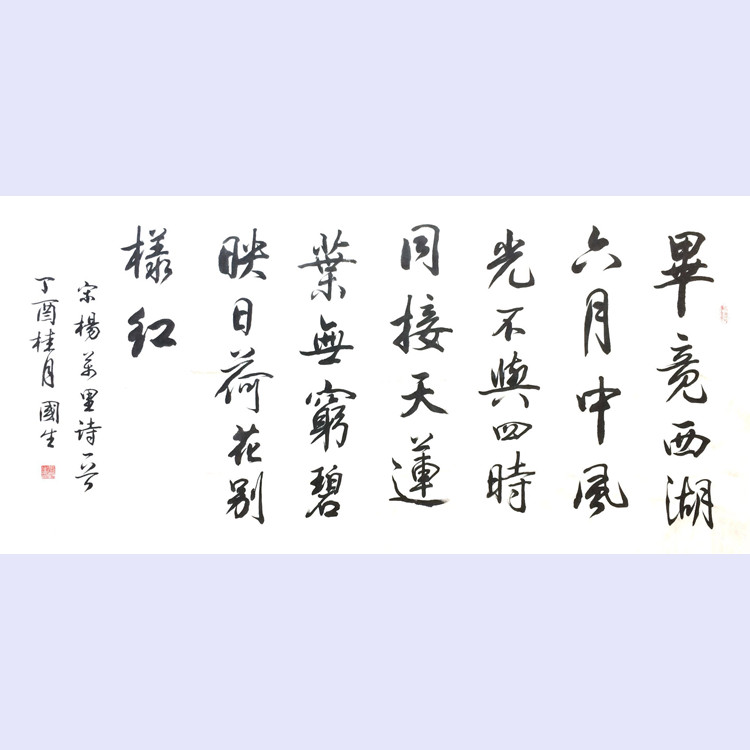 畢竟西湖
六月中風
光不與四時
同接天蓮
葉無窮碧
映日荷花别
樣紅
宋楊萬里詩一首
丁酉桂月國生